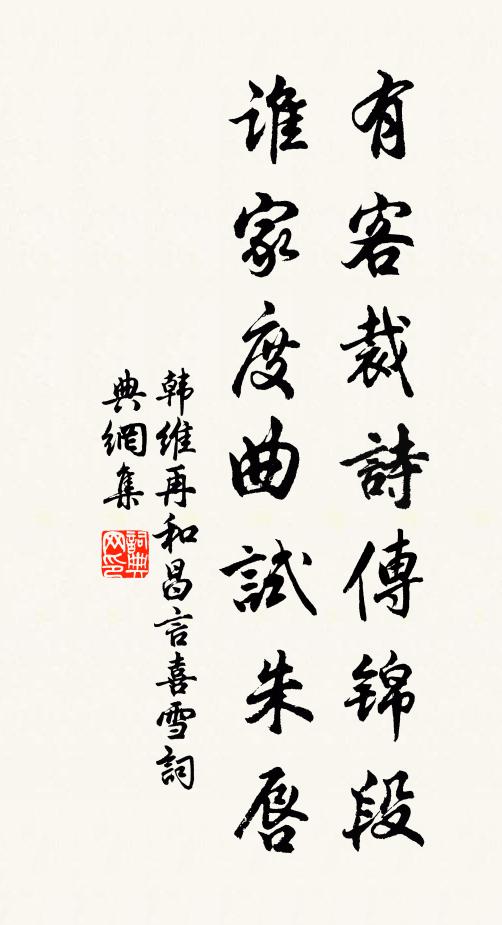 有客裁詩傳锦段
谁家度曲試朱唇
韩維再和昌言喜雪詞
典網集
詞典网印